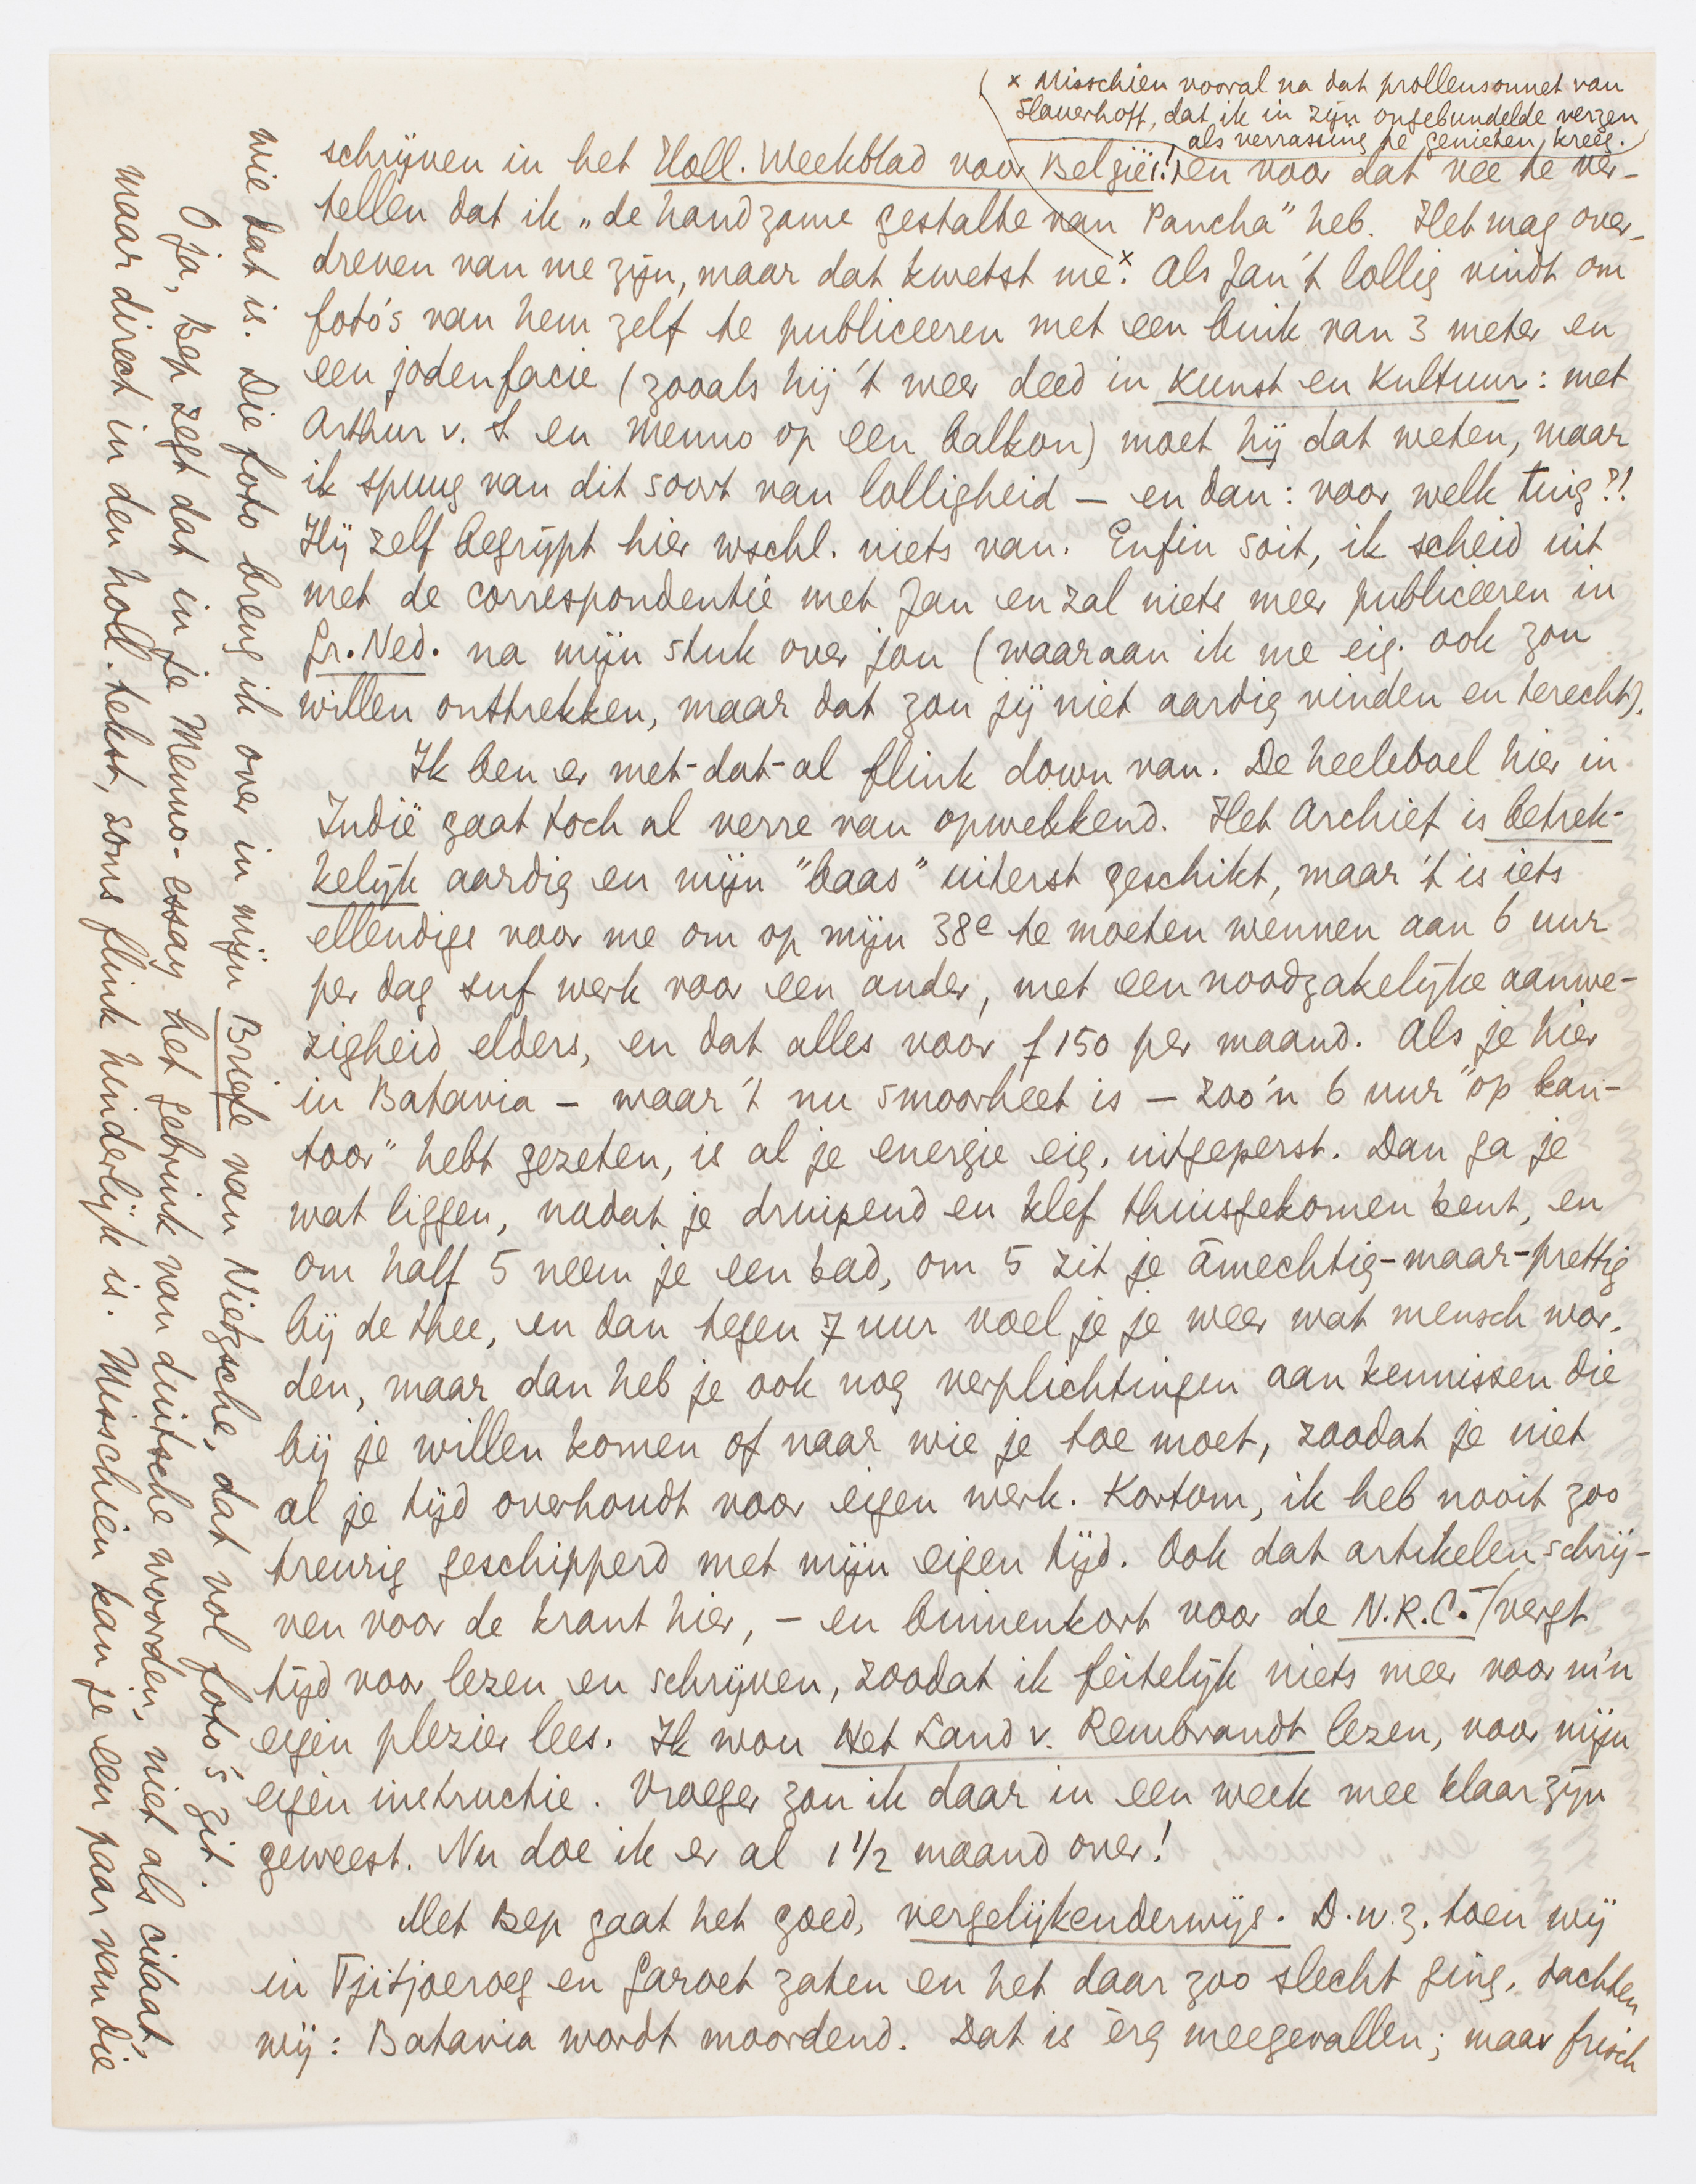 x Misschien vooral na dat prollensonnet van
Slauerhoff, dat ik in zijn ongebundelde verzen
als verrassing te genieten kreeg.
schrijven in het Holl. Weekblad voor België!) en voor dat vee te ver-
tellen dat ik „de handzame gestalte van Pancha” heb. Het mag over-
dreven van me zijn, maar dat kwetst me.x Als Jan 't lollig vindt om
foto's van hem zelf te publiceeren met een buik van 3 meter en
een jodenfacie (zooals hij 't weer deed in Kunst en Kultuur: met
Arthur v. S en Menno op een balkon) moet hij dat weten, maar
ik spuug van dit soort van lolligheid — en dan: voor welk tuig?!
Hij zelf begrijpt hier wschl. niets van. Enfin soit, ik scheid uit
met de correspondentie met Jan en zal niets meer publiceeren in
Gr. Ned. na mijn stuk over jou (waaraan ik me eig. ook zou
willen onttrekken, maar dat zou jij niet aardig vinden en terecht).
Ik ben er met-dat-al flink down van. De heeleboel hier in
Indië gaat toch al verre van opwekkend. Het Archief is betrek-
kelijk aardig en mijn "baas" uiterst geschikt, maar 't is iets
ellendigs voor me om op mijn 38e te moeten wennen aan 6 uur
per dag suf werk voor een ander, met een noodzakelijke aanwe-
zigheid elders, en dat alles voor f 150 per maand. Als je hier
in Batavia — waar 't nu smoorheet is — zoo'n 6 uur "op kan-
toor" hebt gezeten, is al je energie eig. uitgeperst. Dan ga je
wat liggen, nadat je druipend en klef thuisgekomen bent, en
om half 5 neem je een bad, om 5 zit je amechtig-maar-prettig
bij de thee, en dan tegen 7 uur voel je je weer wat mensch wor-
den, maar dan heb je ook nog verplichtingen aan kennissen die
bij je willen komen of naar wie je toe moet, zoodat je niet
al je tijd overhoudt voor eigen werk. Kortom, ik heb nooit zoo
treurig geschipperd met mijn eigen tijd. Ook dat artikelen schrij-
ven voor de krant hier, — en binnenkort voor de N.R.C. — vergt
tijd voor lezen en schrijven, zoodat ik feitelijk niets meer voor m'n
eigen plezier lees. Ik wou Het Land v. Rembrandt lezen, voor mijn
eigen instructie. Vroeger zou ik daar in een week mee klaar zijn
geweest. Nu doe ik er al 1 1/2 maand over!
Met Bep gaat het goed, vergelijkenderwijs. D.w.z. toen wij
in Tjitjoeroeg en Garoet zaten en het daar zoo slecht ging, dachten
wij: Batavia wordt moordend. Dat is èrg meegevallen; maar frisch
wie dat is. Die foto breng ik over in mijn Briefe van Nietzsche, dat vol foto's zit.
O ja, Bep zegt dat in je Menno-essay het gebruik van duitsche woorden, niet als citaat,
maar direct in den holl. tekst, soms flink hinderlijk is. Misschien kan je een paar van die